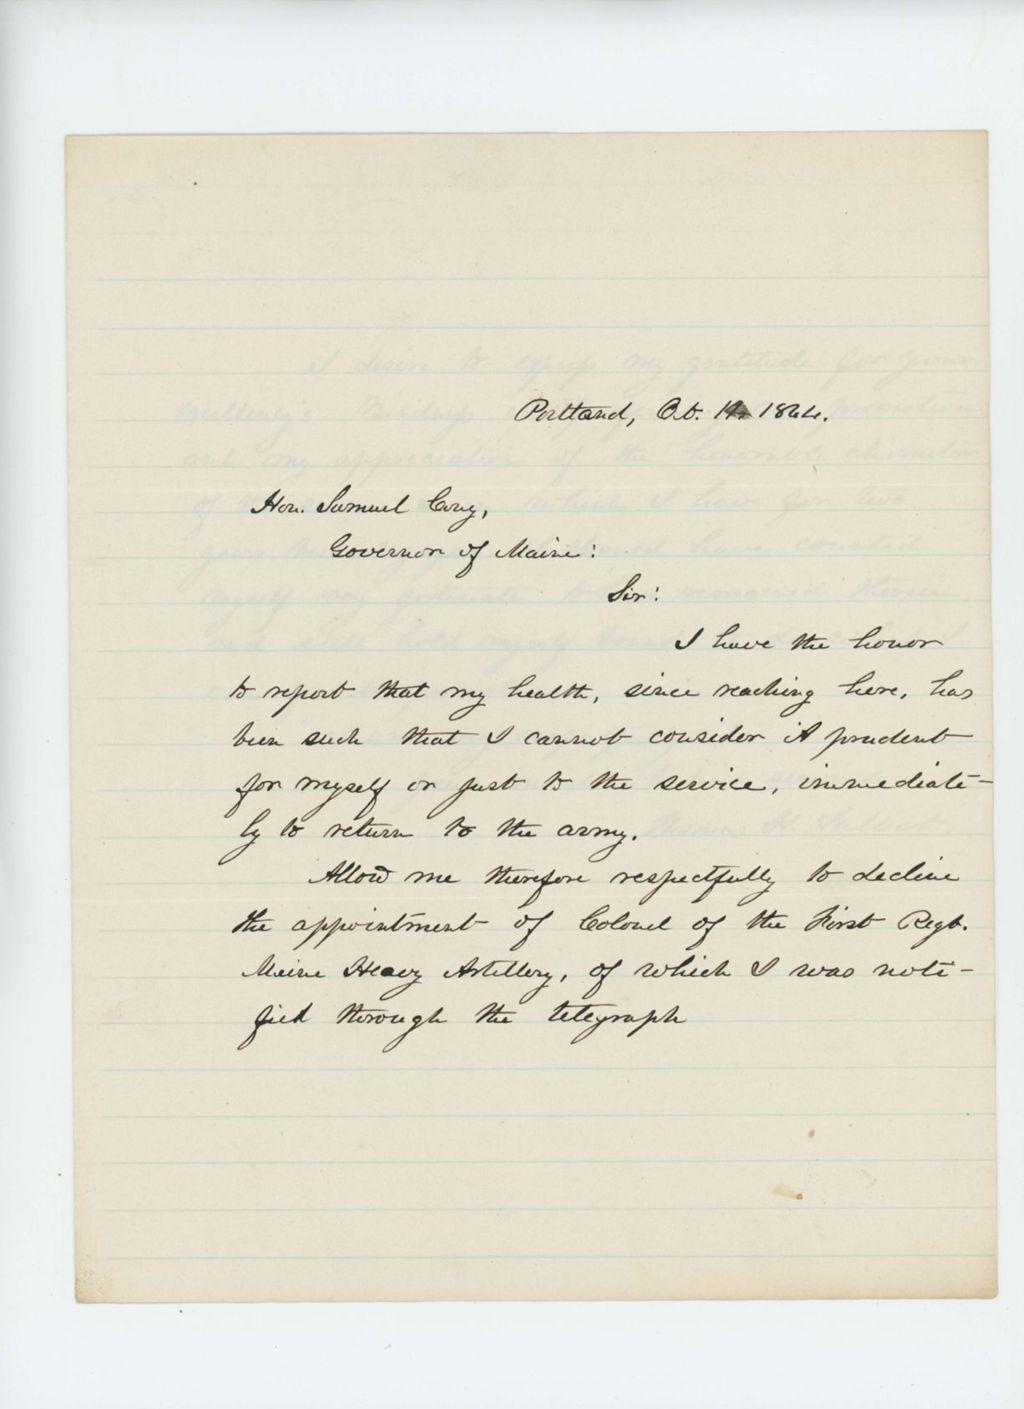 Portland, Oct. 1864.
Hon. Samuel Cony,
Governor of Maine:
Sir:
I have the honor
to report that my health, since reaching here, has
been such that I cannot consider it prudent
for myself or just to the service, immediate-
ly to return to the army.
Allow me therefore respectfully to decline
the appointment of Colonel of the First Regt.
Maine Heavy Artillery, of which I was noti-
fied through the telegraph